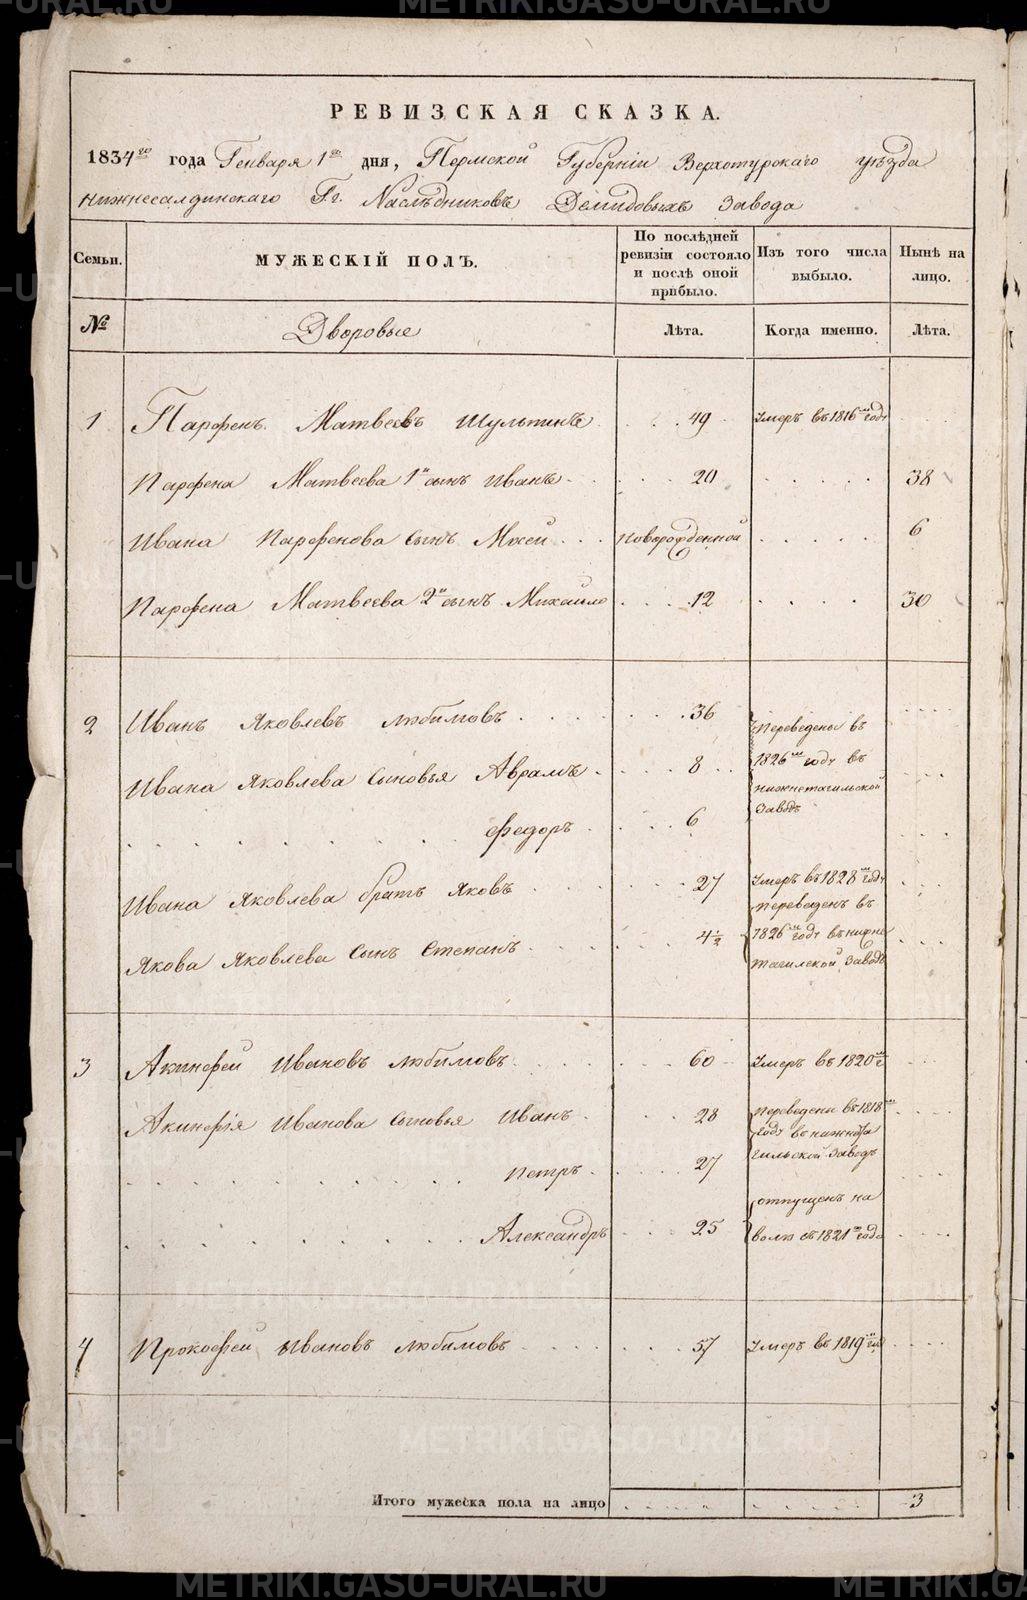 РЕВИЗСКАЯ СКАЗКА.
1834го года Генваря 1го дня, Пермской Губерніи Верхотурскаго уѣзда
нижнесалдинскаго Гг. Наслѣдниковъ Демидовыхъ завода
Семьи. МУЖЕСКІЙ ПОЛЪ. По послѣдней ревизіи состояло и послѣ оной прибыло. Изъ того числа выбыло. Нынѣ на лицо.
№ Дворовые Лѣта. Когда именно. Лѣта.
1 Парфенъ Матвеевъ Шульпинъ 49 Умеръ въ 1816м году
Парфена Матвеева 1й сынъ Иванъ 20 38
Ивана Парфенова сынъ Мосей Новорожденной 6
Парфена Матвеева 2й сынъ Михайло 12 30
2 Иванъ Яковлевъ любимовъ 36 Переведены въ
Ивана Яковлева Сыновья Аврамъ 8 1826м году въ
нижнетагильской
Федоръ 6 Заводъ
Ивана Яковлева братъ Яковъ 27 Умеръ въ 1828м году
переведенъ въ
Якова Яковлева Сынъ Степанъ 4½ 1826м году въ нижне
тагилской заводъ
3 Акинфей Ивановъ любимовъ 60 Умеръ въ 1820м г
Акинфія Иванова Сыновья Иванъ 28 Переведены въ 1818м
году въ нижнета
Петръ 27 гильской заводъ
отпущенъ на
Александръ 25 волю съ 1821го года
4 Прокофей Ивановъ любимовъ 57 Умеръ въ 1819м году
Итого мужеска пола на лицо 3
METRIKI.GASO-URAL.RU